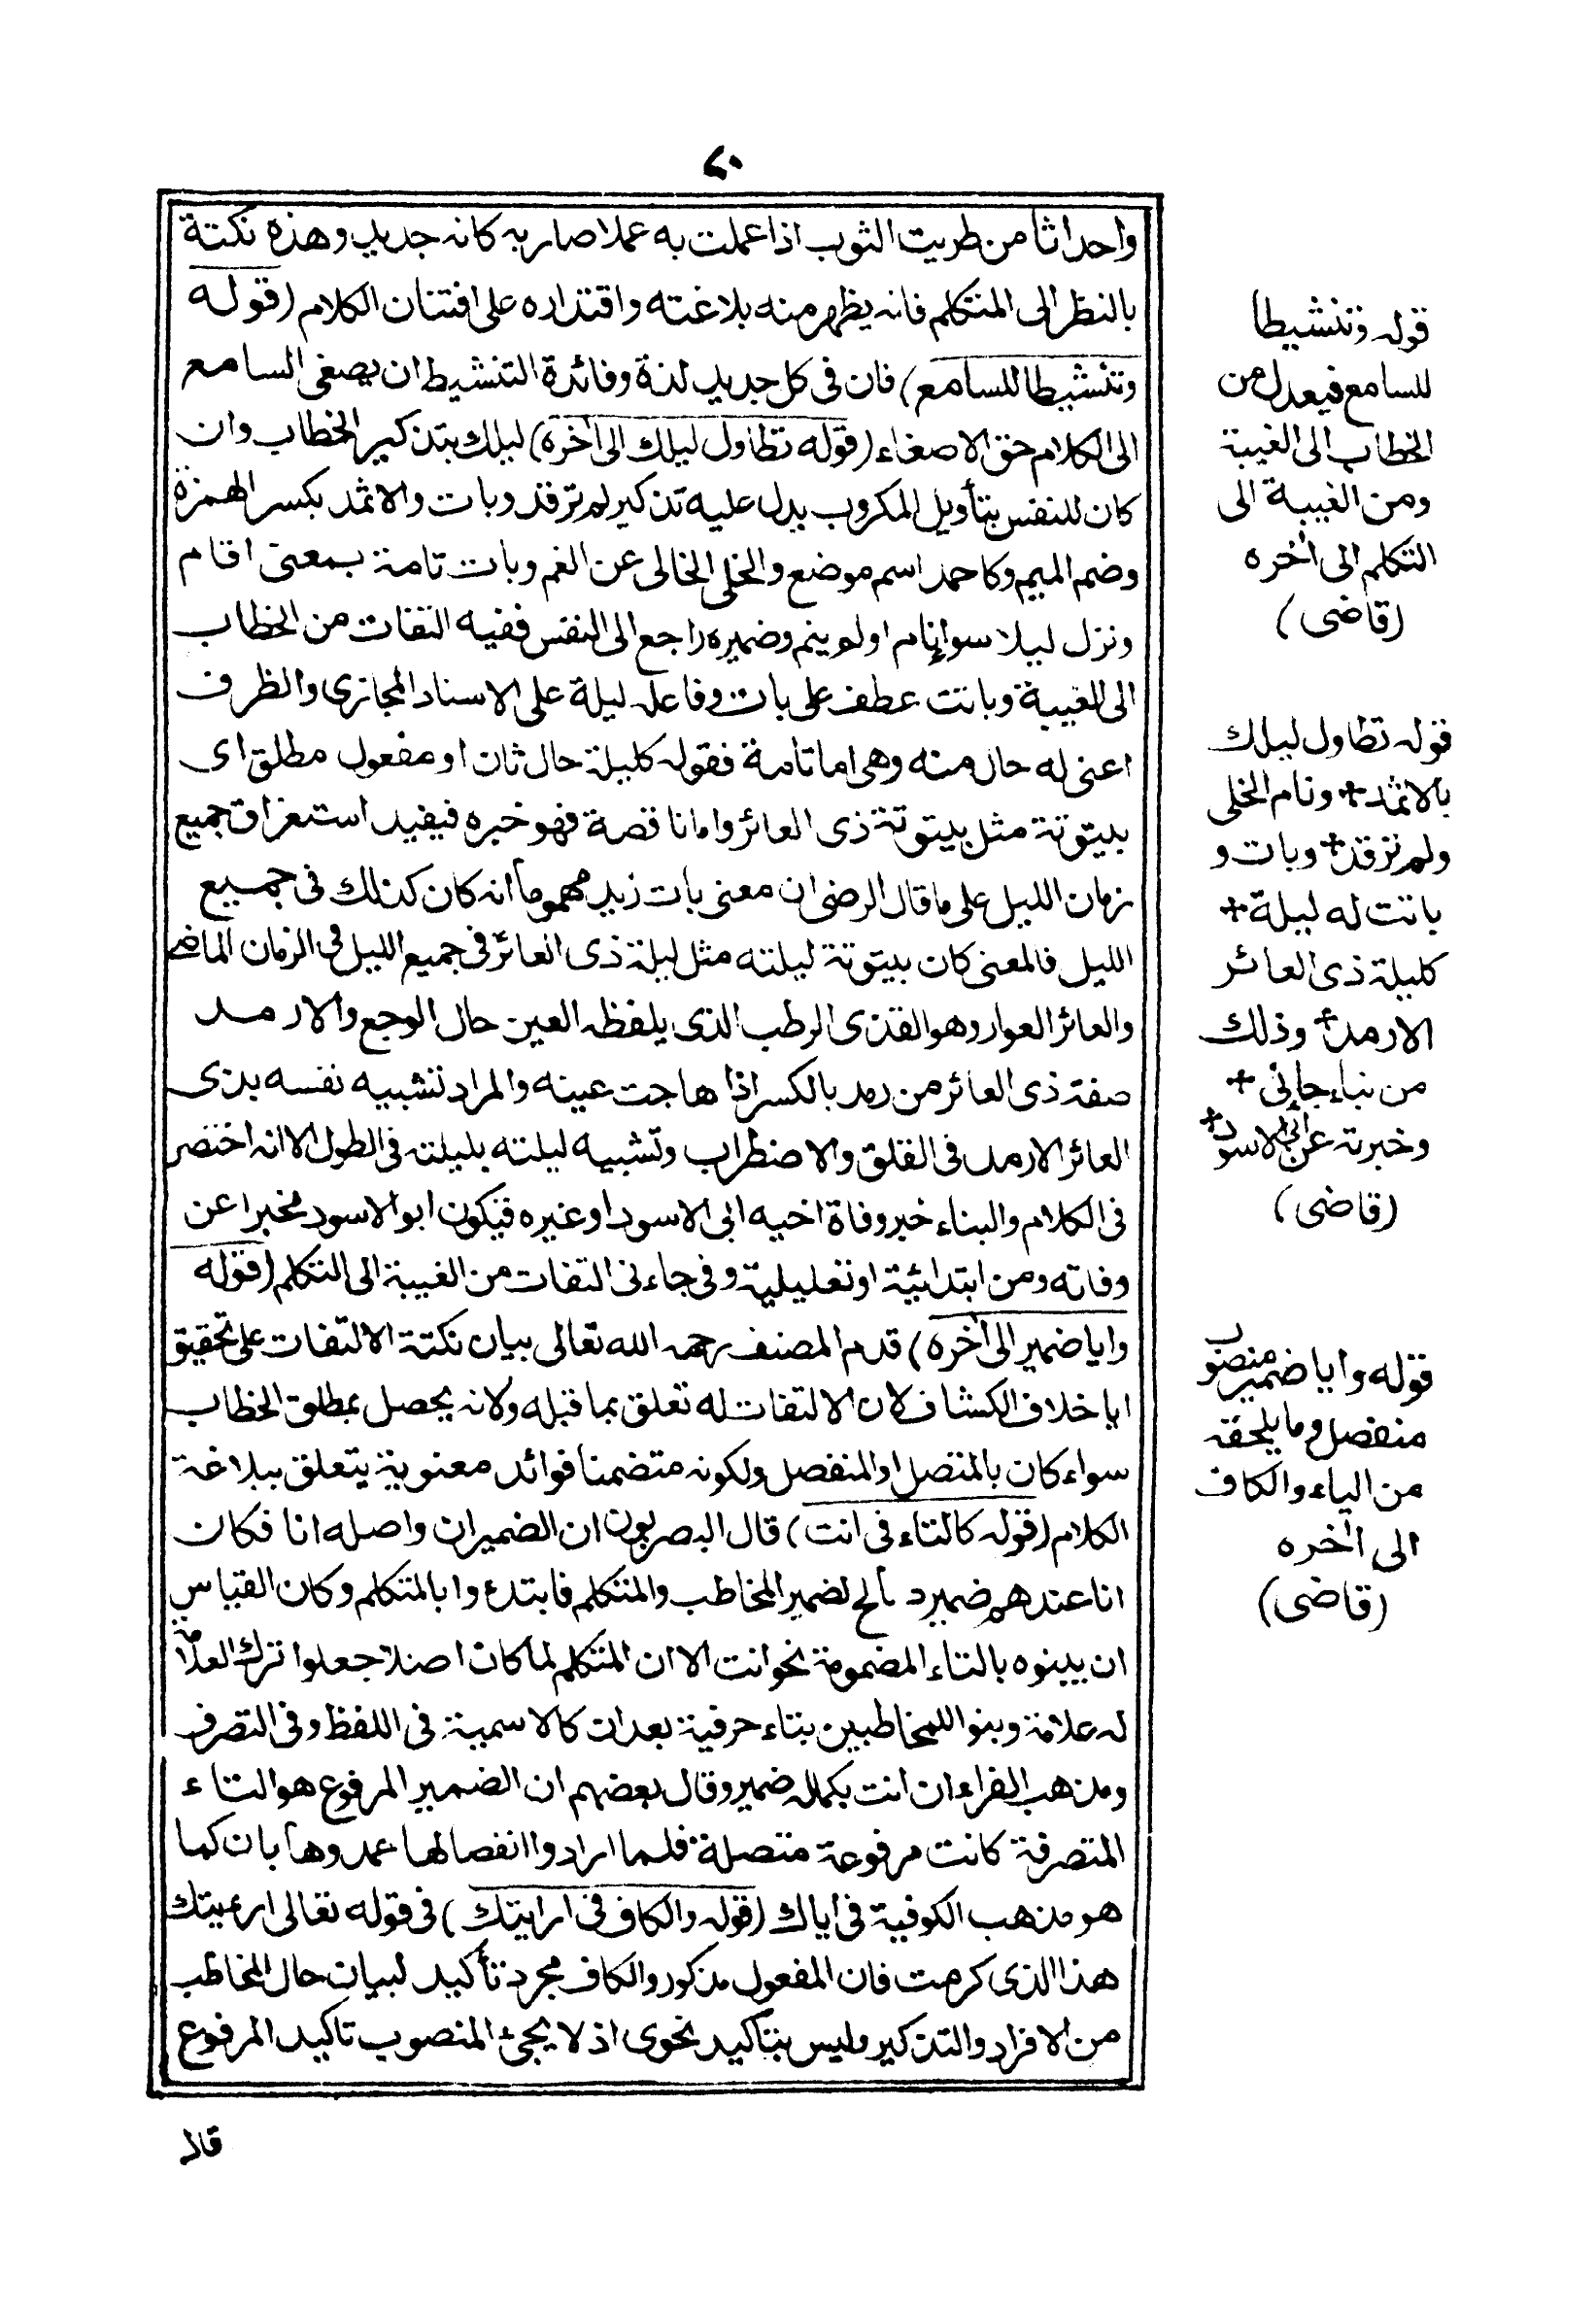 ٧٠
واحداثا من طريت الثوب اذا عملت به عملا صار به كانه جديد وهذه نكتة
بالنظر الى المتكلم فانه يظهر منه بلاغته واقتداره على افتنان الكلام (قوله
وتنشيطا للسامع) فان فى كل جديد لذة وفائدة التنشيط ان يصغى السامع
الى الكلام حق الاصغاء (قوله تطاول ليلك الى اخره) ليلك بتذكير الخطاب وان
كان للنفس بتأويل المكروب يدل عليه تذكير لم ترقد وبات والاثمد بكسر الهمزة
وضم الميم وكاحمد اسم موضع والخلى الخالى عن الغم وبات تامة بمعنى اقام
ونزل ليلا سواء نام او لم ينم وضميره راجع الى النفس ففيه التفات من الخطاب
الى الغيبة وباتت عطف على بات وفاعله ليلة على الاسناد المجازى والظرف
اعنى له حال منه وهى اما تامة فقوله كليلة حال ثان او مفعول مطلق اى
بيتوتة مثل بيتوتة ذى العائر واما ناقصة فهو خبره فيفيد استغراق جميع
زمان الليل على ما قال الرضى ان معنى بات زيد مهموما انه كان كذلك فى جميع
الليل فالمعنى كان بيتوتة ليلته مثل ليلة ذى العائر فى جميع الليل فى الزمان الماضى
والعائر العوار وهو القذى الرطب الذى يلفظه العين حال الوجع والارمد
صفة ذى العائر من رمد بالكسر اذا هاجت عينه والمراد تشبيه نفسه بذى
العائر الارمد فى القلق والاضطراب وتشبيه ليلته بليلته فى الطول الا انه اختصر
فى الكلام والبناء خبر وفاة اخيه ابى الاسود او غيره فيكون ابو الاسود مخبرا عن
وفاته ومن ابتدائية او تعليلية وفى جاءنى التفات من الغيبة الى التكلم (قوله
وايا ضمير الى اخره) قدم المصنف رحمه الله تعالى بيان نكتة الالتفات على تحقيق
ايا خلاف الكشاف لان الالتفات له تعلق بما قبله ولانه يحصل بمطلق الخطاب
سواء كان بالمتصل او المنفصل ولكونه متضمنا فوائد معنوية يتعلق ببلاغة
الكلام (قوله كالتاء فى انت) قال البصريون ان الضمير ان واصله انا فكان
انا عندهم ضمير صالح لضمير المخاطب والمتكلم فابتدءوا بالمتكلم وكان القياس
ان يبينوه بالتاء المضمومة نحو انت الا ان المتكلم لما كان اصلا جعلوا ترك العلامة
له علامة وبنوا للمخاطبين بتاء حرفية بعد ان كالاسمية فى اللفظ وفى التصرف
ومذهب الفراء ان انت بكماله ضمير وقال بعضهم ان الضمير المرفوع هو التاء
المتصرفة كانت مرفوعة متصلة فلما ارادوا انفصالها عمدوها بان كما
هو مذهب الكوفية فى اياك (قوله والكاف فى ارايتك) فى قوله تعالى ارءيتك
هذا الذى كرمت فان المفعول مذكور والكاف مجرد تأكيد لبيان حال المخاطب
من الافراد والتذكير وليس بتاكيد نحوى اذ لا يجئ المنصوب تاكيد المرفوع
قال
قوله وتنشيطا
للسامع فيعدل من
الخطاب الى الغيبة
ومن الغيبة الى
التكلم الى اخره
(قاضى)
قوله تطاول ليلك
بالاثمد + ونام الخلى
ولم ترقد + وبات و
باتت له ليلة +
كليلة ذى العائر
الارمد + وذلك
من نباء جاءنى +
وخبرته عن ابى الاسود +
(قاضى)
قوله وايا ضمير منصوب
منفصل وما يلحقه
من الياء والكاف
الى اخره
(قاضى)